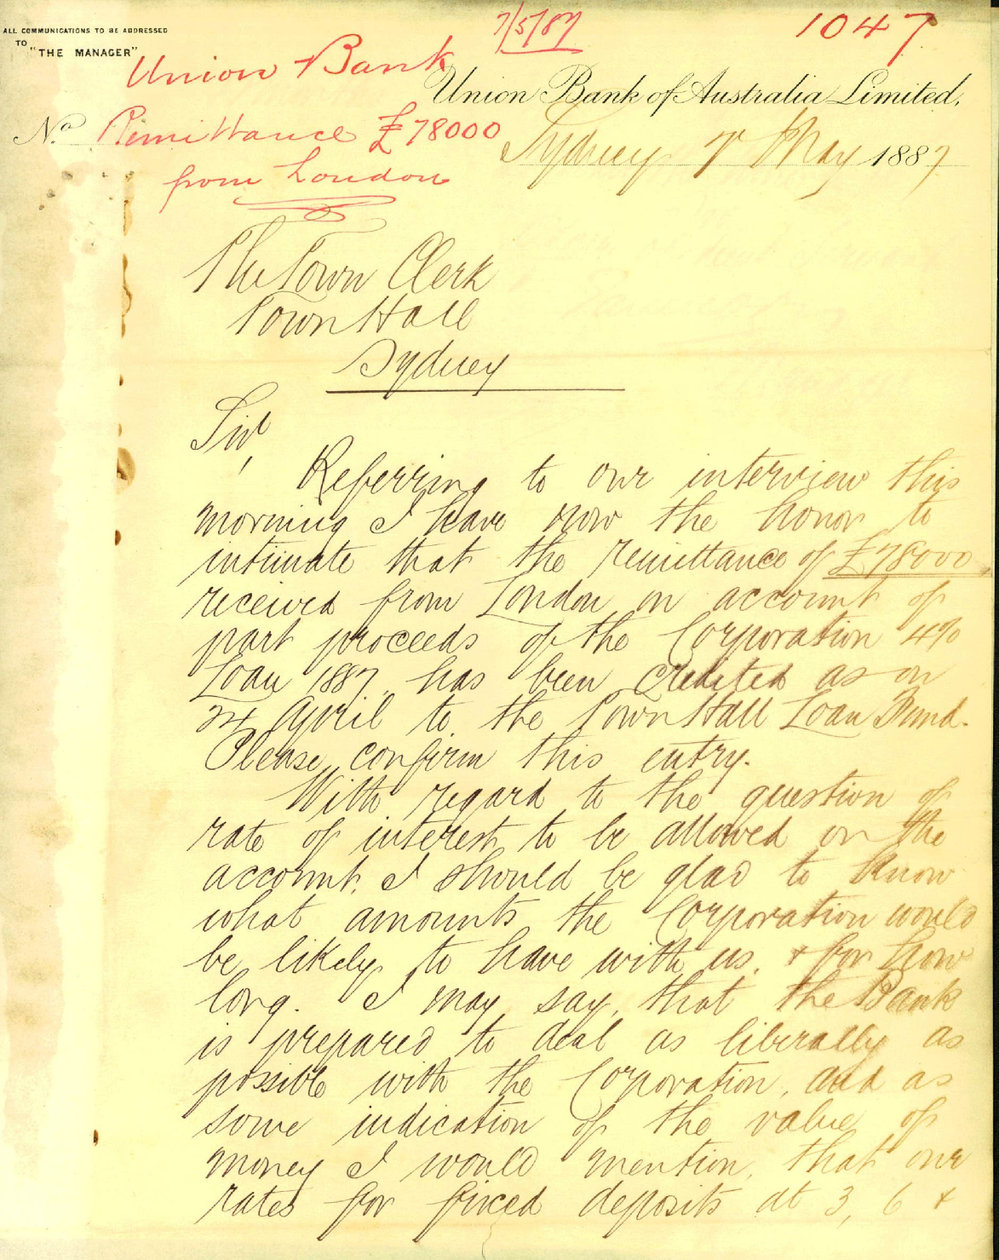 ALL COMMUNICATIONS TO BE ADDRESSED
TO
"THE MANAGER"
7/5/87
1047
Union Bank
Remittance £78000
from London
Union Bank of Australia Limited,
No
Sydney 7 May 1887
The Town Clerk
Town Hall
Sydney
Sir,
Referring to our interview this
morning I have now the honor to
intimate that the remittance of £78000
received from London on account of
part proceeds of the Corporation 4%
Loan 1887, has been credited as on
24 April to the Town Hall Loan Fund.
Please confirm this entry.
With regard to the question of
rate of interest to be allowed on the
account, I should be glad to know
what amounts the Corporation would
be likely to have with us, & for how
long. I may say, that the Bank
is prepared to deal as liberally as
possible with the Corporation, and as
some indication of the value of
money I would mention, that our
rates for fixed deposits at 3, 6 &